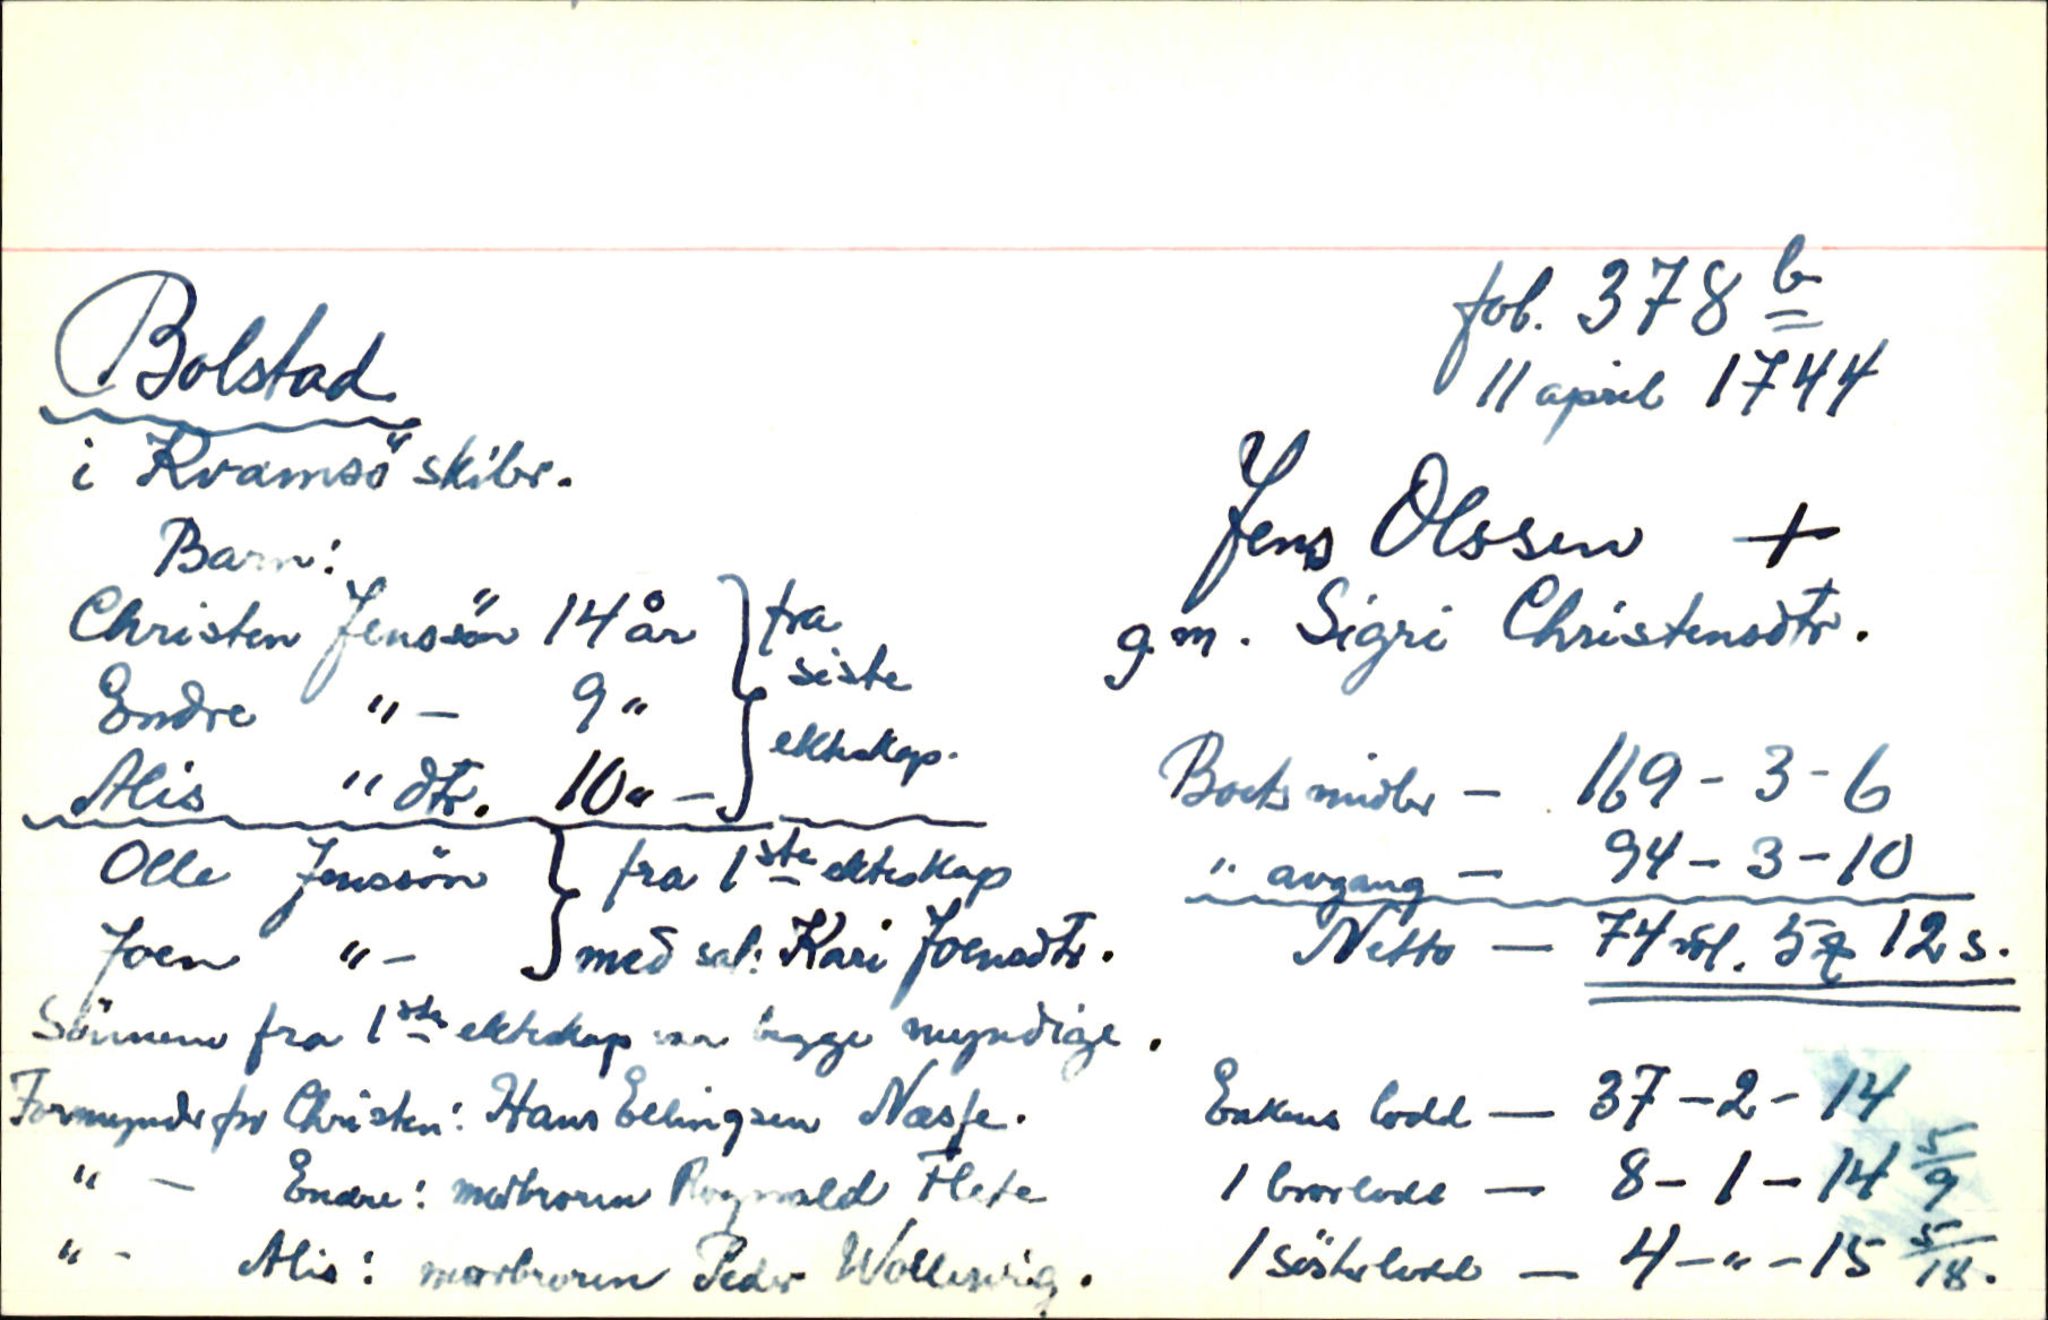 fol. 378 b
11 april 1744
Bolstad
i Kvamsö skibr.
Jens Olssen +
g.m. Sigri Christensdtr.
Barn:
Christen Jenssön 14 år } fra
Endre "- 9 " } siste
Alis " dtr. 10 " - } ekteskap.
Olle Jenssön } fra 1ste ekteskap
Joen "- } med sal: Kari Joensdtr.
Sönnene fra 1ste ekteskap var begge myndige.
Formyndr for Christen: Hans Ellingsen Næsse.
" - Endre: morbroren Rognald Flete
" - Alis: morbroren Peder Wolleswig.
Boets midler - 169 - 3 - 6
" avgang - 94 - 3 - 10
Netto - 74 rdl. 5 12 s.
Enkens lodd - 37 - 2 - 14
1 brorlodd - 8 - 1 - 14 5/9
1 söster lodd - 4 - " - 15 5/18.